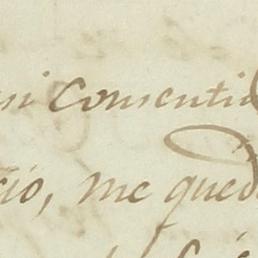 si consentid
cio, me qued